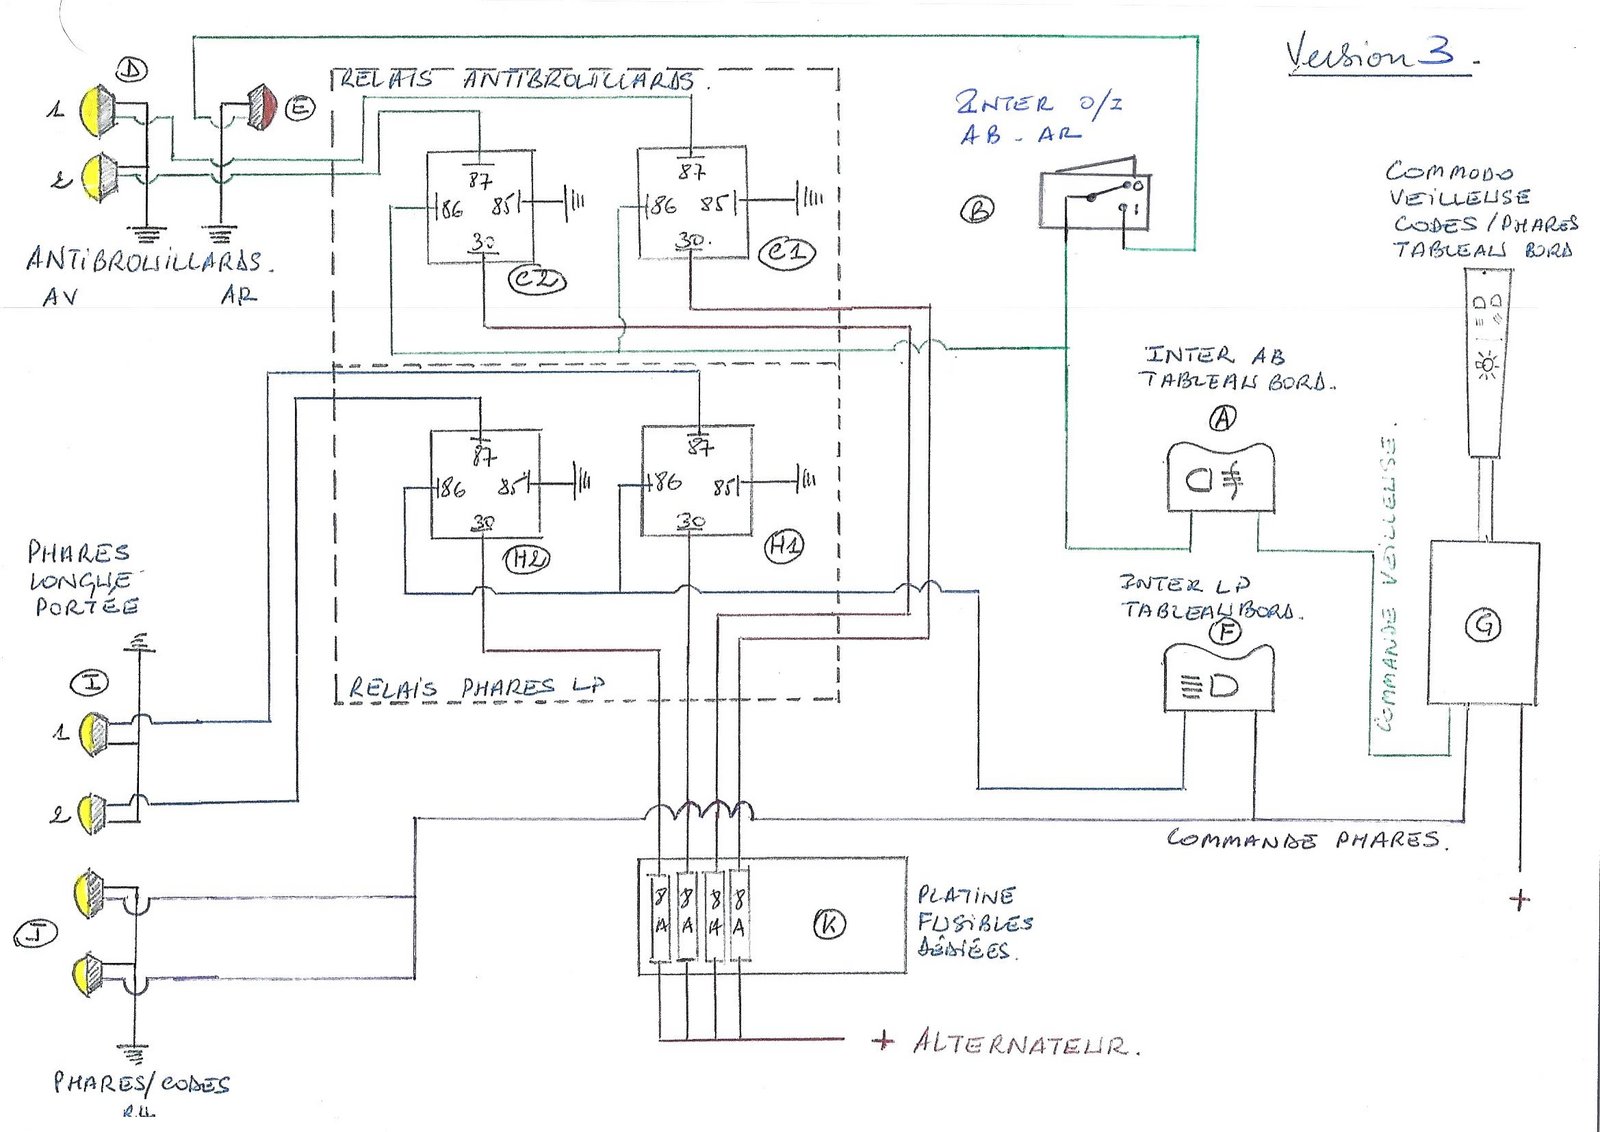 Version 3.
D
1
2
E
ANTIBROUILLARDS.
AV
AR
RELAIS ANTIBROUILLARDS.
87
86
85
30
C2
87
86
85
30.
C1
INTER O/I
AB - AR
B
0
1
COMMODO
VEILLEUSE
CODES/PHARES
TABLEAU BORD
INTER AB
TABLEAU BORD.
A
COMMANDE VEILLEUSE.
87
86
85
30
H2
87
86
85
30
H1
RELAIS PHARES LP
INTER LP
TABLEAU BORD.
F
G
PHARES
LONGUE
PORTÉE
I
1
2
COMMANDE PHARES.
+
J
8 A
8 A
8 A
8 A
K
PLATINE
FUSIBLES
DÉDIÉES.
+ ALTERNATEUR.
PHARES/CODES